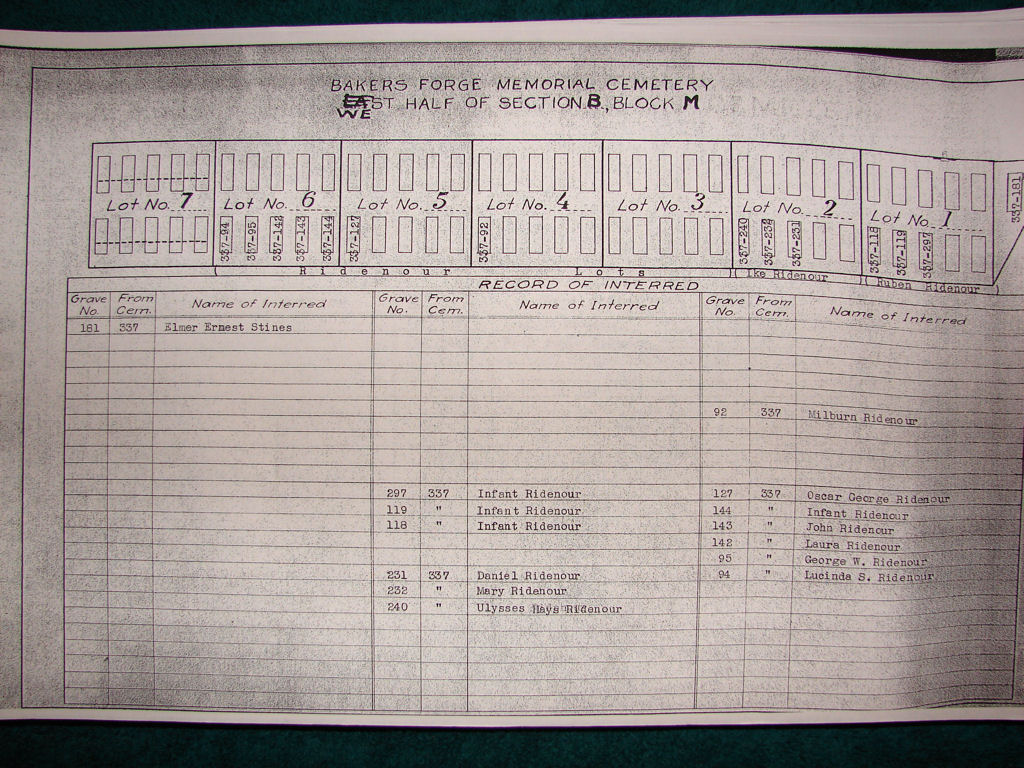 BAKERS FORGE MEMORIAL CEMETERY
EAST HALF OF SECTION B, BLOCK M
WE
Lot No. 7 Lot No. 6 Lot No. 5 Lot No. 4 Lot No. 3 Lot No. 2 Lot No. 1
337-94 337-95 337-142 337-143 337-144 337-127 337-92 337-240 337-232 337-231 337-118 337-119 337-297 337-181
Ridenour Lots Ike Ridenour Ruben Ridenour
RECORD OF INTERRED
Grave No. From Cem. Name of Interred Grave No. From Cem. Name of Interred Grave No. From Cem. Name of Interred
181 337 Elmer Ernest Stines
92 337 Milburn Ridenour
297 337 Infant Ridenour 127 337 Oscar George Ridenour
119 " Infant Ridenour 144 " Infant Ridenour
118 " Infant Ridenour 143 " John Ridenour
142 " Laura Ridenour
95 " George W. Ridenour
231 337 Daniel Ridenour 94 " Lucinda S. Ridenour
232 " Mary Ridenour
240 " Ulysses Hays Ridenour